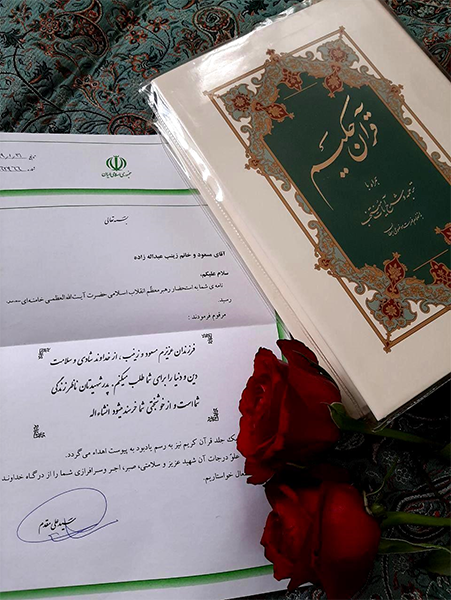 قرآن حکیم
همراه با
جمهوری اسلامی ایران
بسمه تعالی
آقای مسعود و خانم زینب عبداله زاده
سلام علیکم،
نامه‌ی شما به استحضار رهبر معظّم انقلاب اسلامی حضرت آیت‌الله‌العظمی خامنه‌ای
رسید.
مرقوم فرمودند:
فرزندان عزیزم مسعود و زینب، از خداوند شادی و سلامت
دین و دنیا را برای شما طلب میکنم، پدر شهیدتان ناظر زندگی
شما است و از خوشبختی شما خرسند میشود انشاءاله
یک جلد قرآن کریم نیز به رسم یادبود به پیوست اهداء می‌گردد.
علوّ درجات آن شهید عزیز و سلامتی، صبر، اجر و سرافرازی شما را از درگاه خداوند
متعال خواستاریم.
سیدعلی مقدم